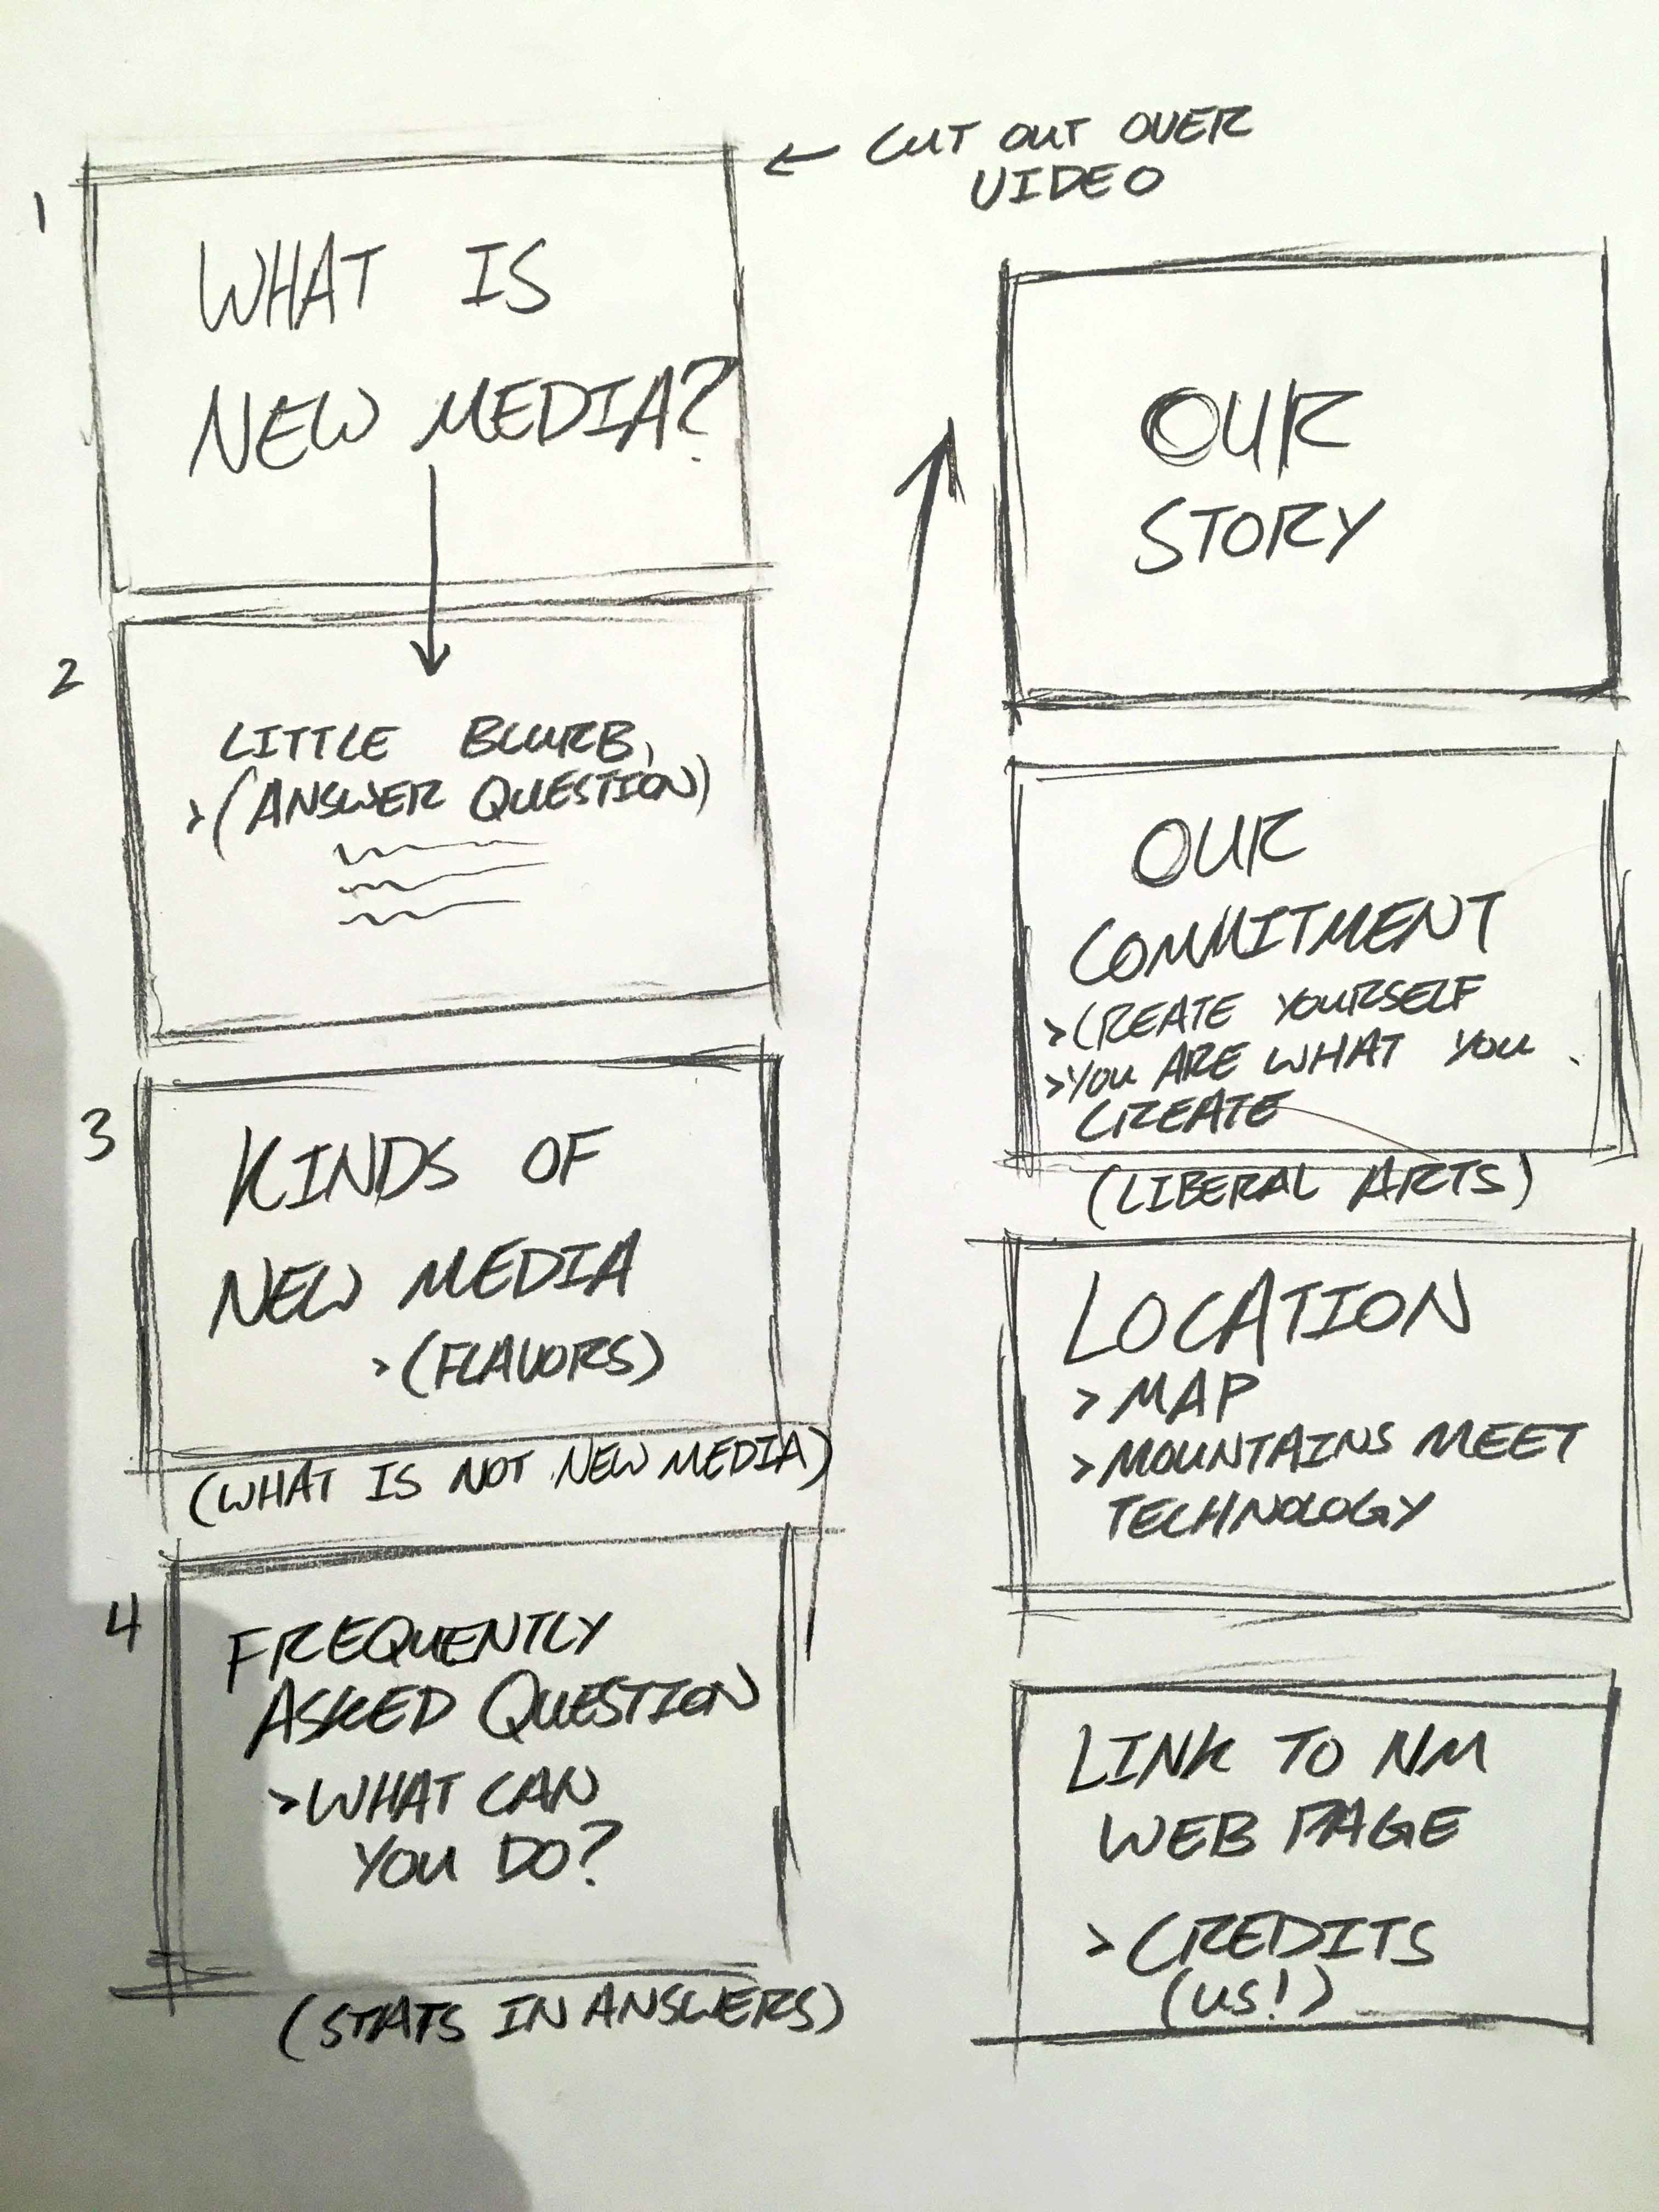 ← CUT OUT OVER
VIDEO
1
WHAT IS
NEW MEDIA?
2
LITTLE BLURB,
>(ANSWER QUESTION)
3
KINDS OF
NEW MEDIA
>(FLAVORS)
(WHAT IS NOT NEW MEDIA)
4
FREQUENTLY
ASKED QUESTION
>WHAT CAN
YOU DO?
(STATS IN ANSWERS)
OUR
STORY
OUR
COMMITMENT
>CREATE YOURSELF
>YOU ARE WHAT YOU
CREATE
(LIBERAL ARTS)
LOCATION
>MAP
>MOUNTAINS MEET
TECHNOLOGY
LINK TO NM
WEB PAGE
>CREDITS
(US!)